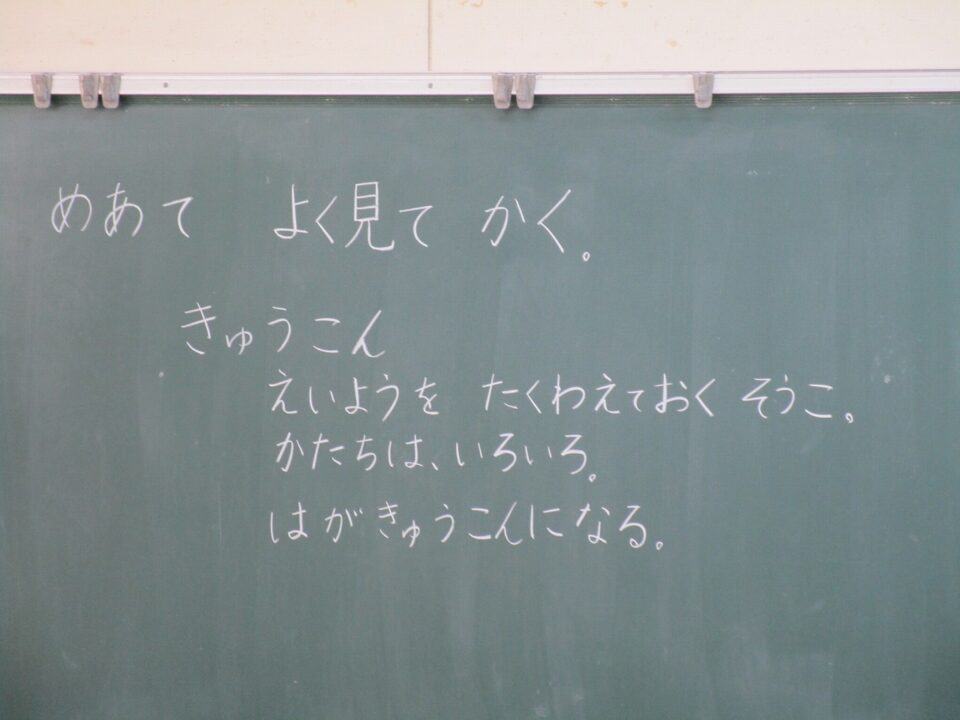 めあて　よく見て かく。
きゅうこん
えいようを　たくわえておく そうこ。
かたちは、いろいろ。
はがきゅうこんになる。